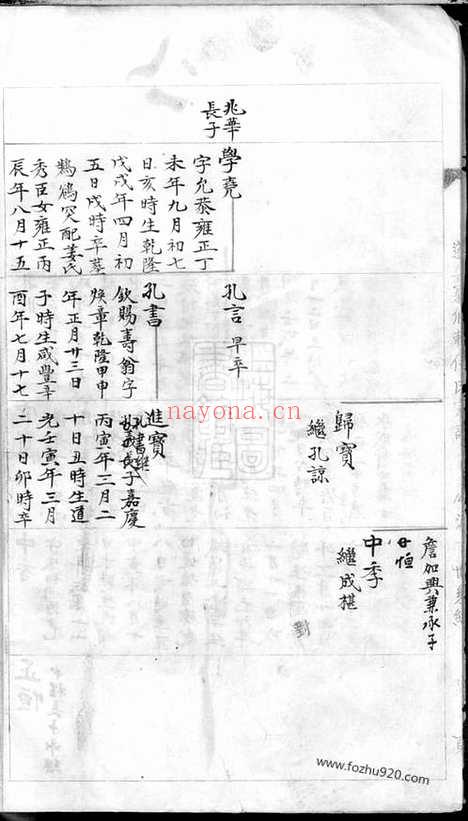 兆華
長子
學堯
字允恭雍正丁
未年九月初七
日亥時生乾隆
戊戌年四月初
五日戌時卒墓
鵝鴣突配姜氏
秀臣女雍正丙
辰年八月十五
孔言 早卒
孔書
欽賜壽翁字
煥章乾隆甲申
年正月廿三日
子時生咸豐辛
酉年七月十七
歸寶
繼孔諒
進寶
長子嘉慶
丙寅年三月二
十日丑時生道
光壬寅年三月
二十日卯時卒
詹加興兼承子
中季
繼成椹
正恒
nayona.cn
www.fozhu920.com